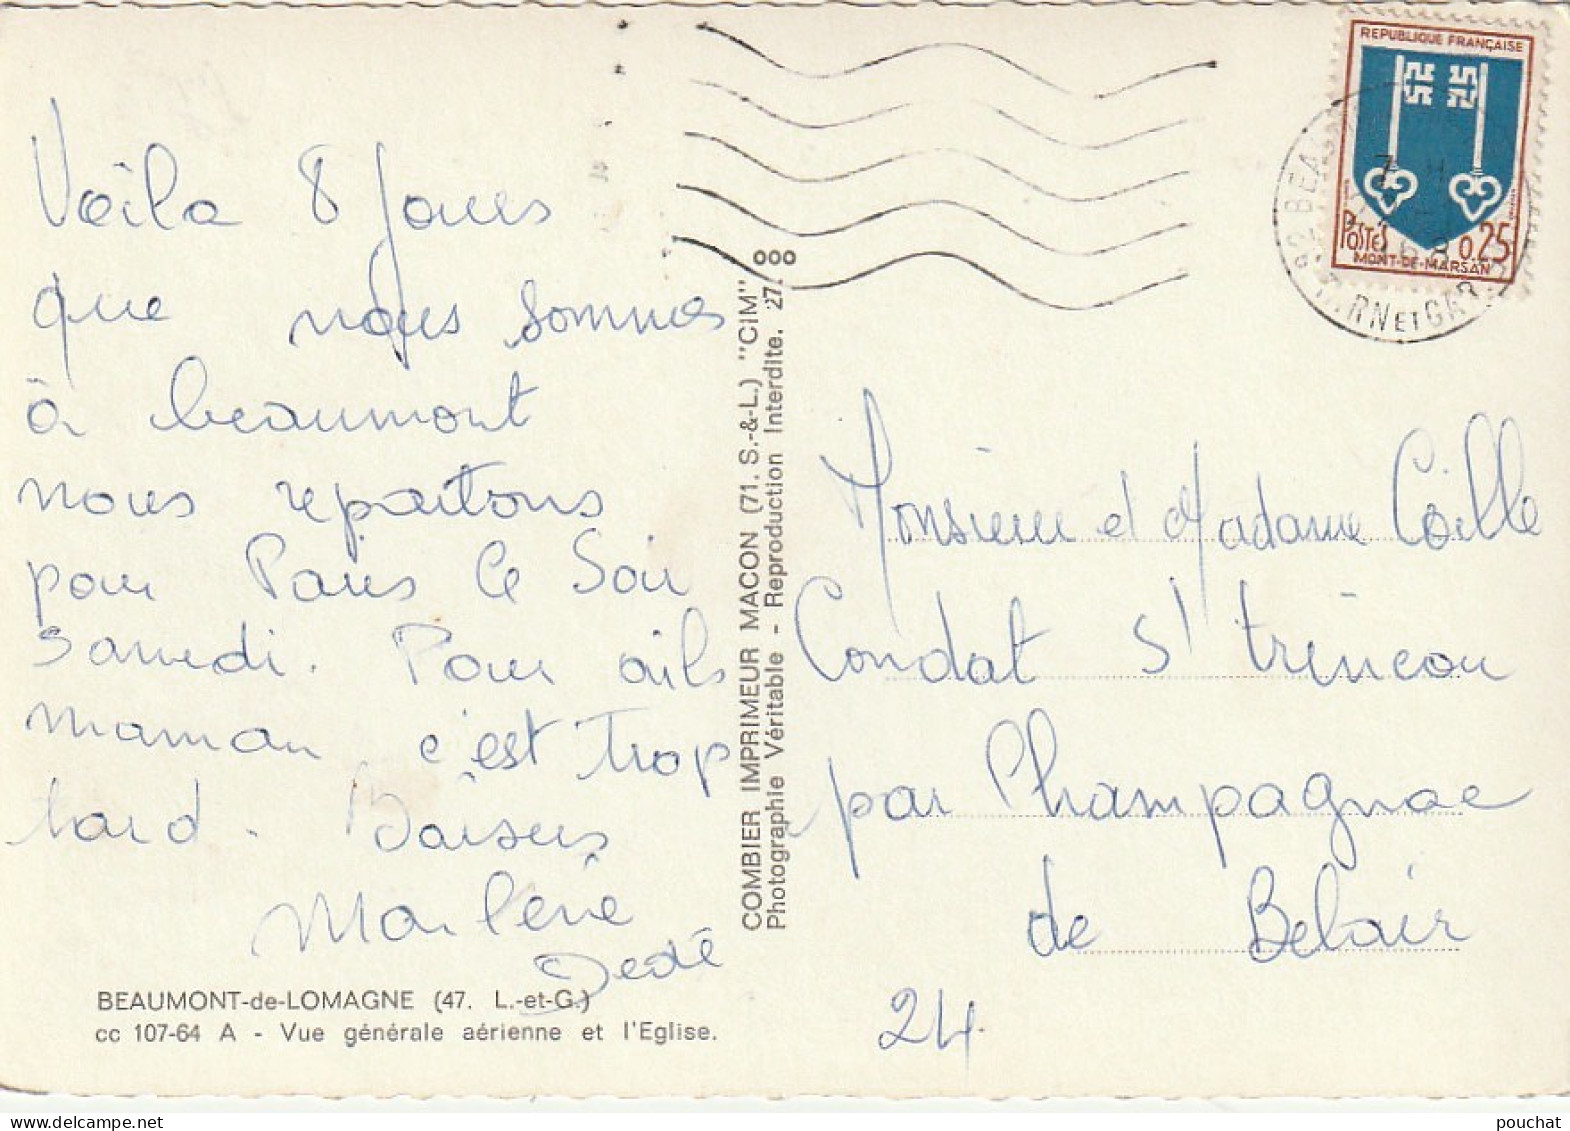 Voila 8 Jours
que nous sommes
à beaumont
nous repartons
pour Paris le Soir
Samedi. Pour
maman c'est trop
tard. Baisers
Marlène
Dedé
BEAUMONT-de-LOMAGNE (47. L.-et-G.)
cc 107-64 A - Vue générale aérienne et l'Eglise.
COMBIER IMPRIMEUR MACON (71. S.-&-L.) "CIM"
Photographie Véritable - Reproduction Interdite. 27.
000
REPUBLIQUE FRANÇAISE
POSTES 0,25
MONT-DE-MARSAN
82 BEA
TARN ET GAR
Monsieur et Madame Coille
Condat St trincou
par Champagnac
de Belair
24
pouchat